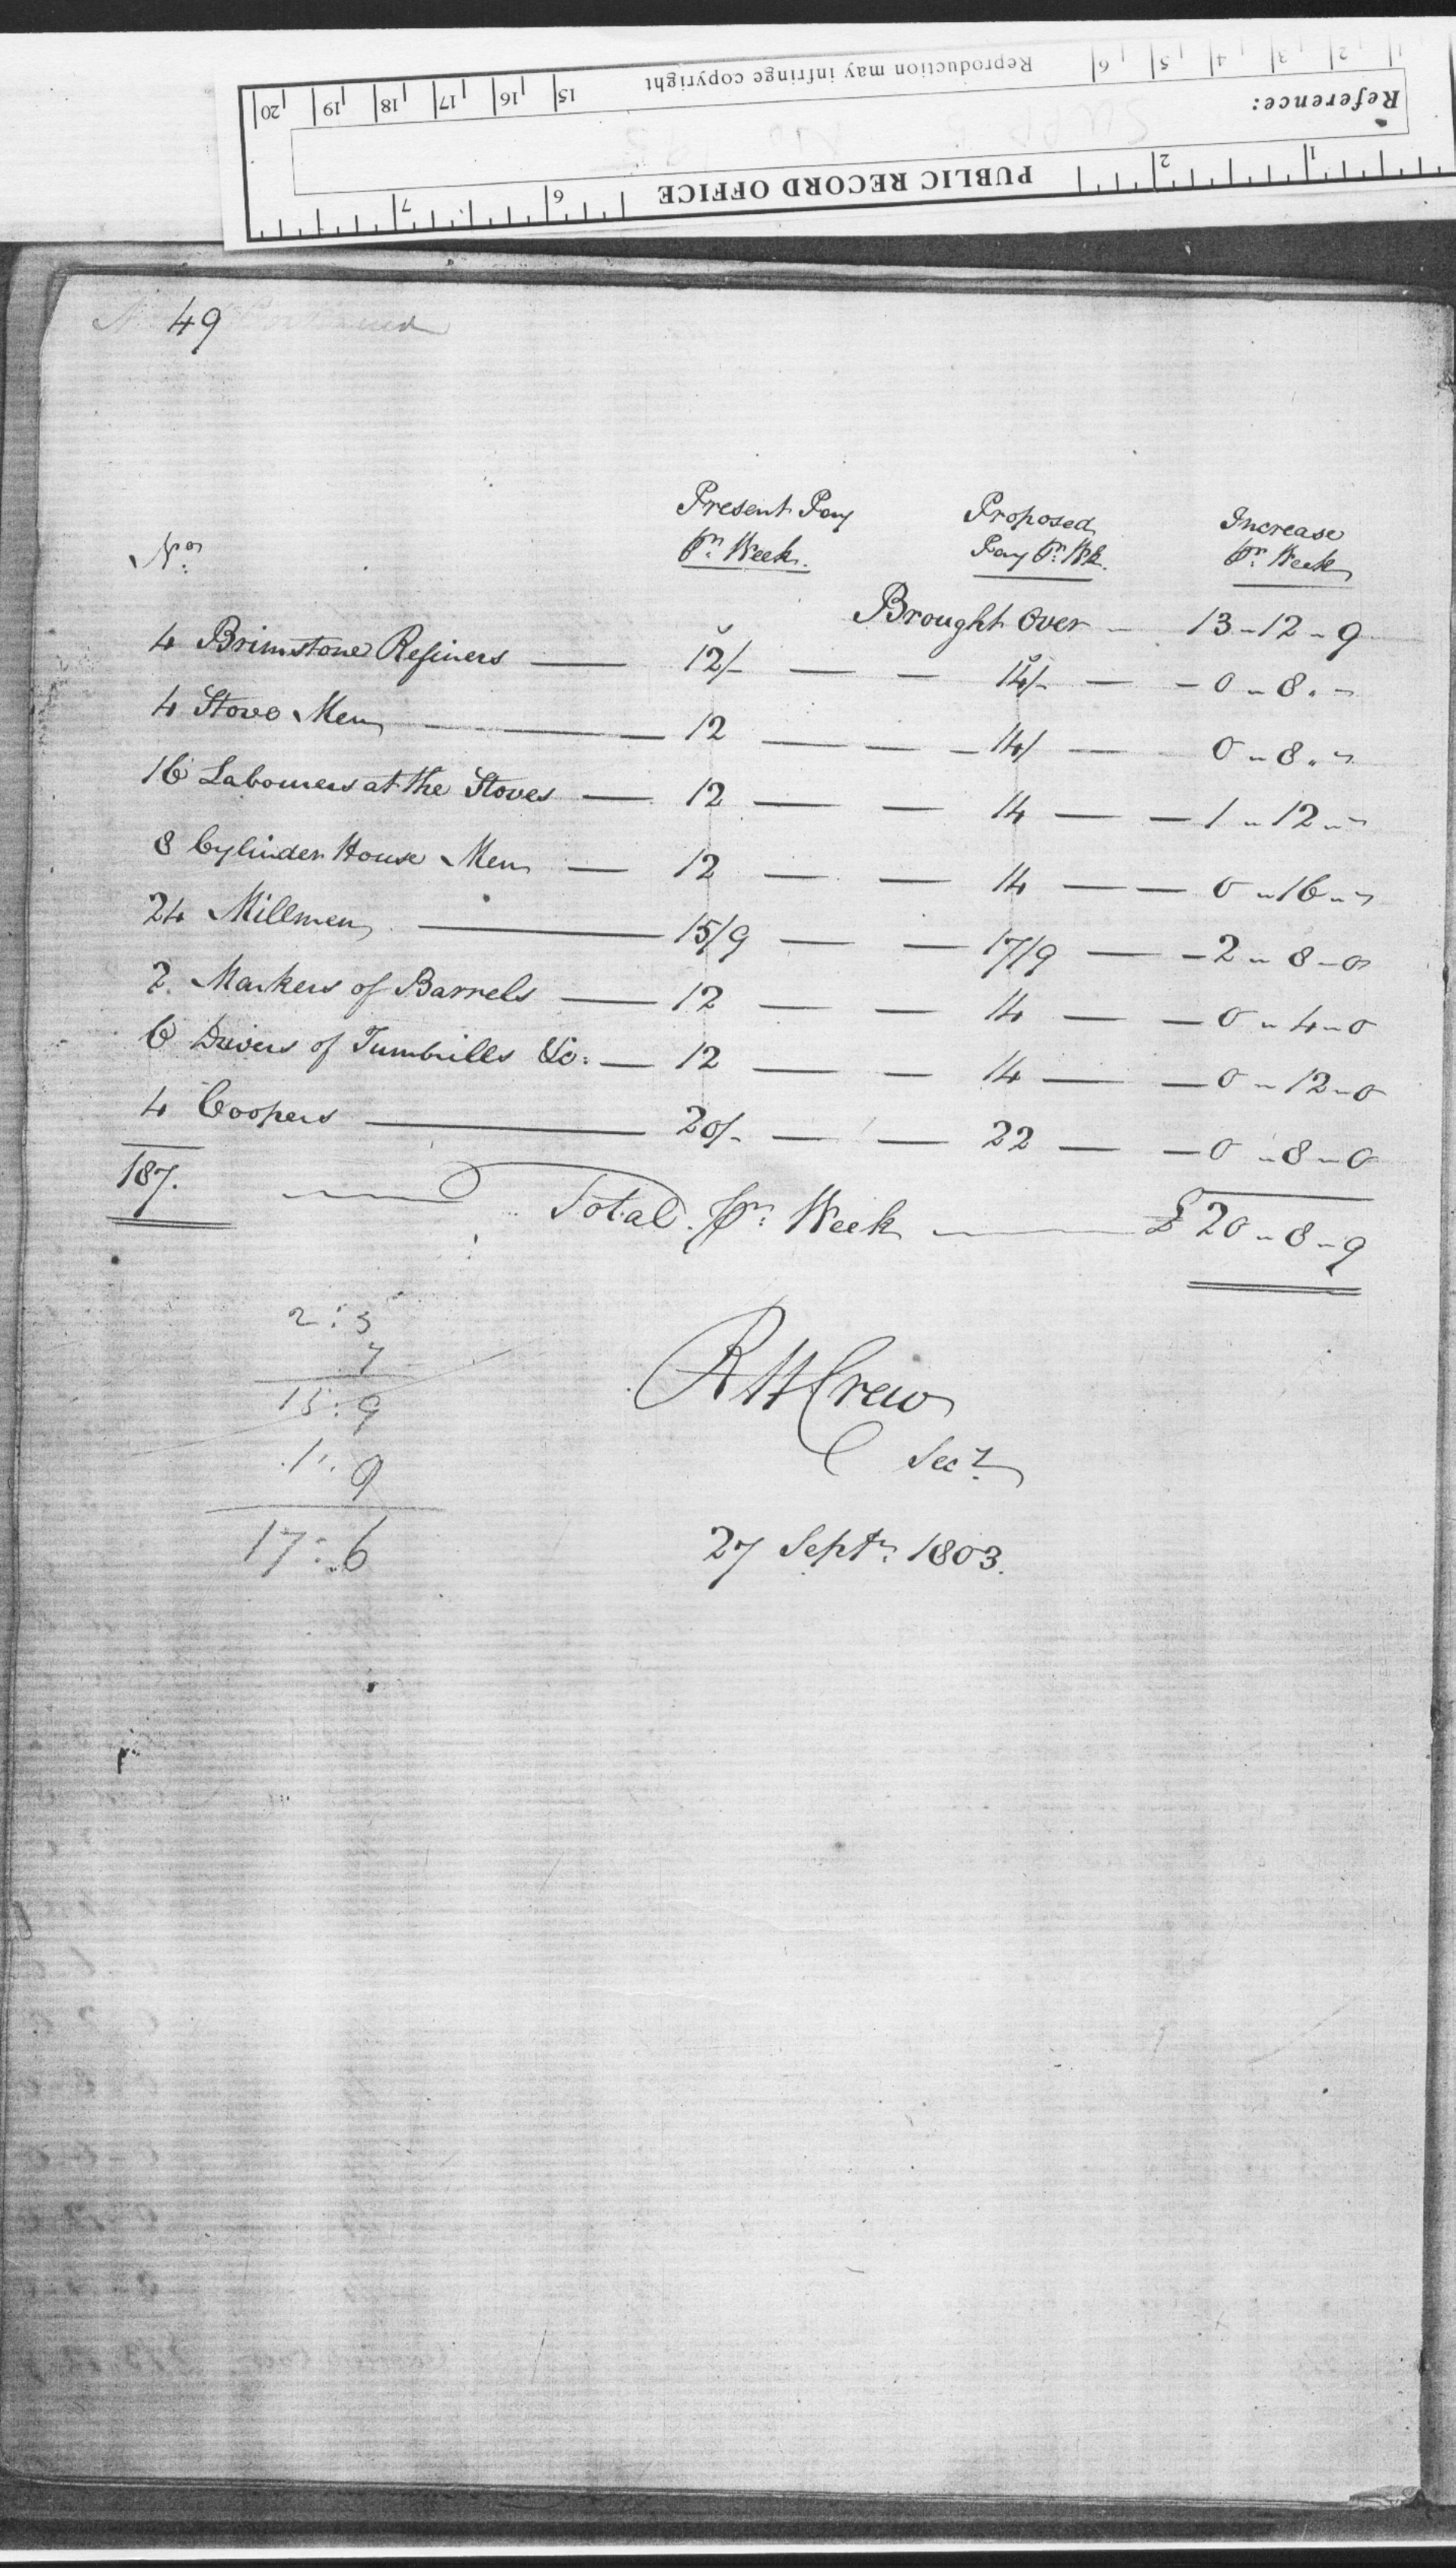 20 19 18 17 16 15 Reproduction may infringe copyright 6 5 4 3 2 1
Reference:
7 6 PUBLIC RECORD OFFICE 2 1
49
No. Present Pay pr. Week. Proposed Pay pr. Wk. Increase pr. Week
Brought Over — 13-12-9
4 Brimstone Refiners — 12/- — — 14/- — - 0-8.-
4 Stove Men — 12 — — 14/ — 0-8.-
16 Labourers at the Stoves — 12 — — 14 — - 1-12--
8 Cylinder House Men — 12 — — 14 — — 0-16--
24 Millmen — 15/9 — — 17/9 — - 2-8-0
2. Markers of Barrels — 12 — — 14 — - 0-4-0
6 Drivers of Tumbrills &c: — 12 — — 14 — - 0-12-0
4 Coopers — 20/- — — 22 — - 0-8-0
187. Total pr: Week — £20-8-9
2:3
7
15:9
1:9
17:6
RH Crew
Secy
27 Septr: 1803.